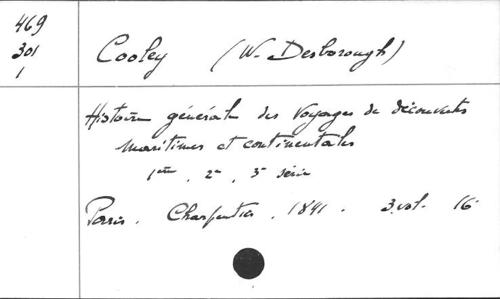 469
301
1
Cooley (W. Desborough)
Histoire générale des Voyages de découvertes
maritimes et continentales
1ère, 2e, 3e série
Paris. Charpentier, 1841. 3 vol. 16°